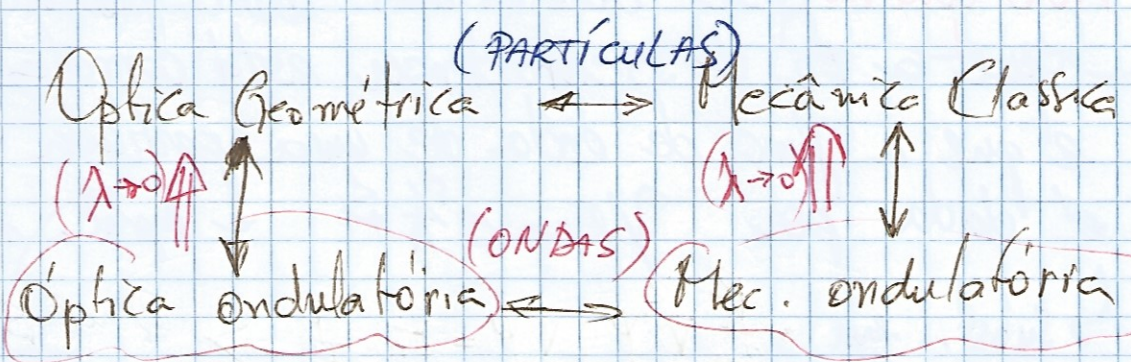 (PARTÍCULAS)
Óptica Geométrica ↔ Mecânica Classica
(λ→0) (λ→0)
(ONDAS)
Óptica ondulatória ↔ Mec. ondulatória